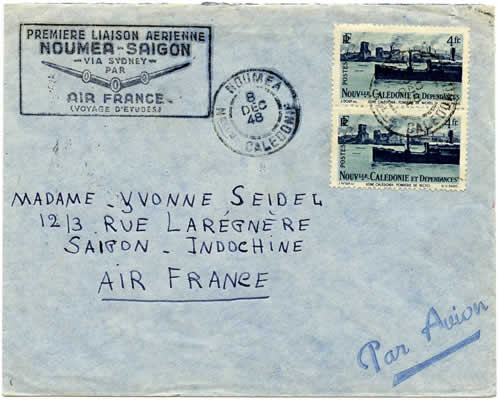 PREMIERE LIAISON AERIENNE
NOUMEA-SAIGON
-VIA SYDNEY-
PAR
AIR FRANCE
(VOYAGE D'ETUDES)
NOUMEA
8
DEC
48
Nelle CALEDONIE
4fr.
RF
POSTES
NOUVELLE CALÉDONIE ET DÉPENDANCES
4fr.
RF
POSTES
NOUVELLE CALÉDONIE ET DÉPENDANCES
MADAME - YVONNE SEIDEL
12/3 RUE LARÉGNÈRE
SAIGON - INDOCHINE
AIR FRANCE
Par Avion